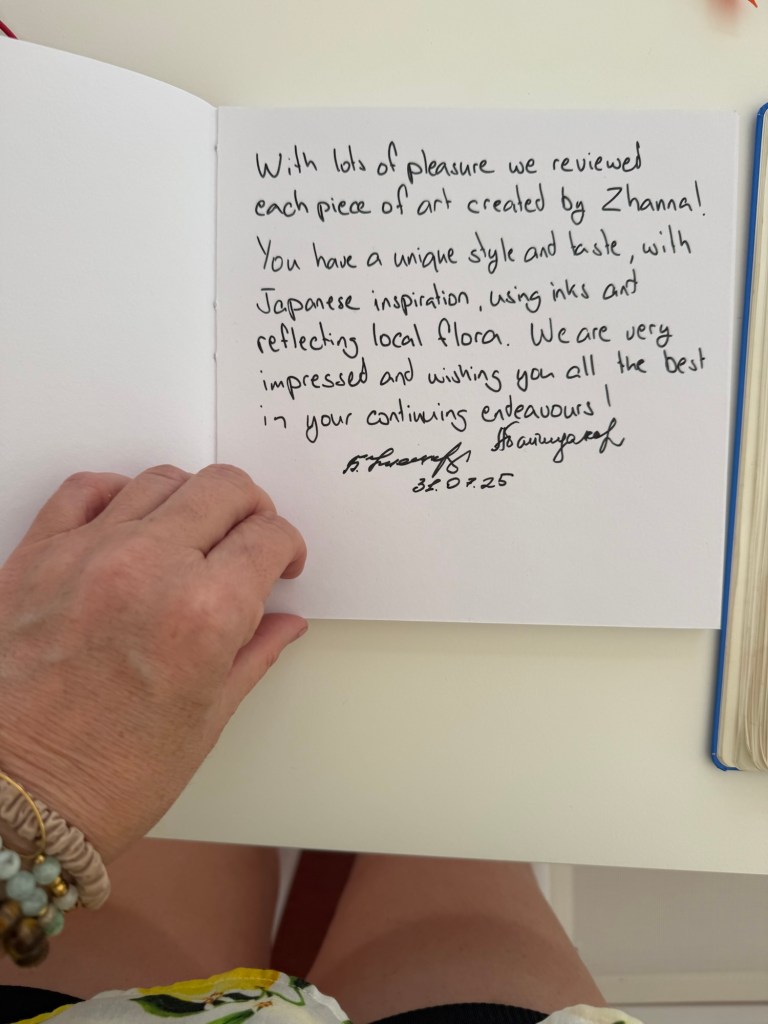 With lots of pleasure we reviewed
each piece of art created by Zhanna!
You have a unique style and taste, with
Japanese inspiration, using inks and
reflecting local flora. We are very
impressed and wishing you all the best
in your continuing endeavours!
31.07.25